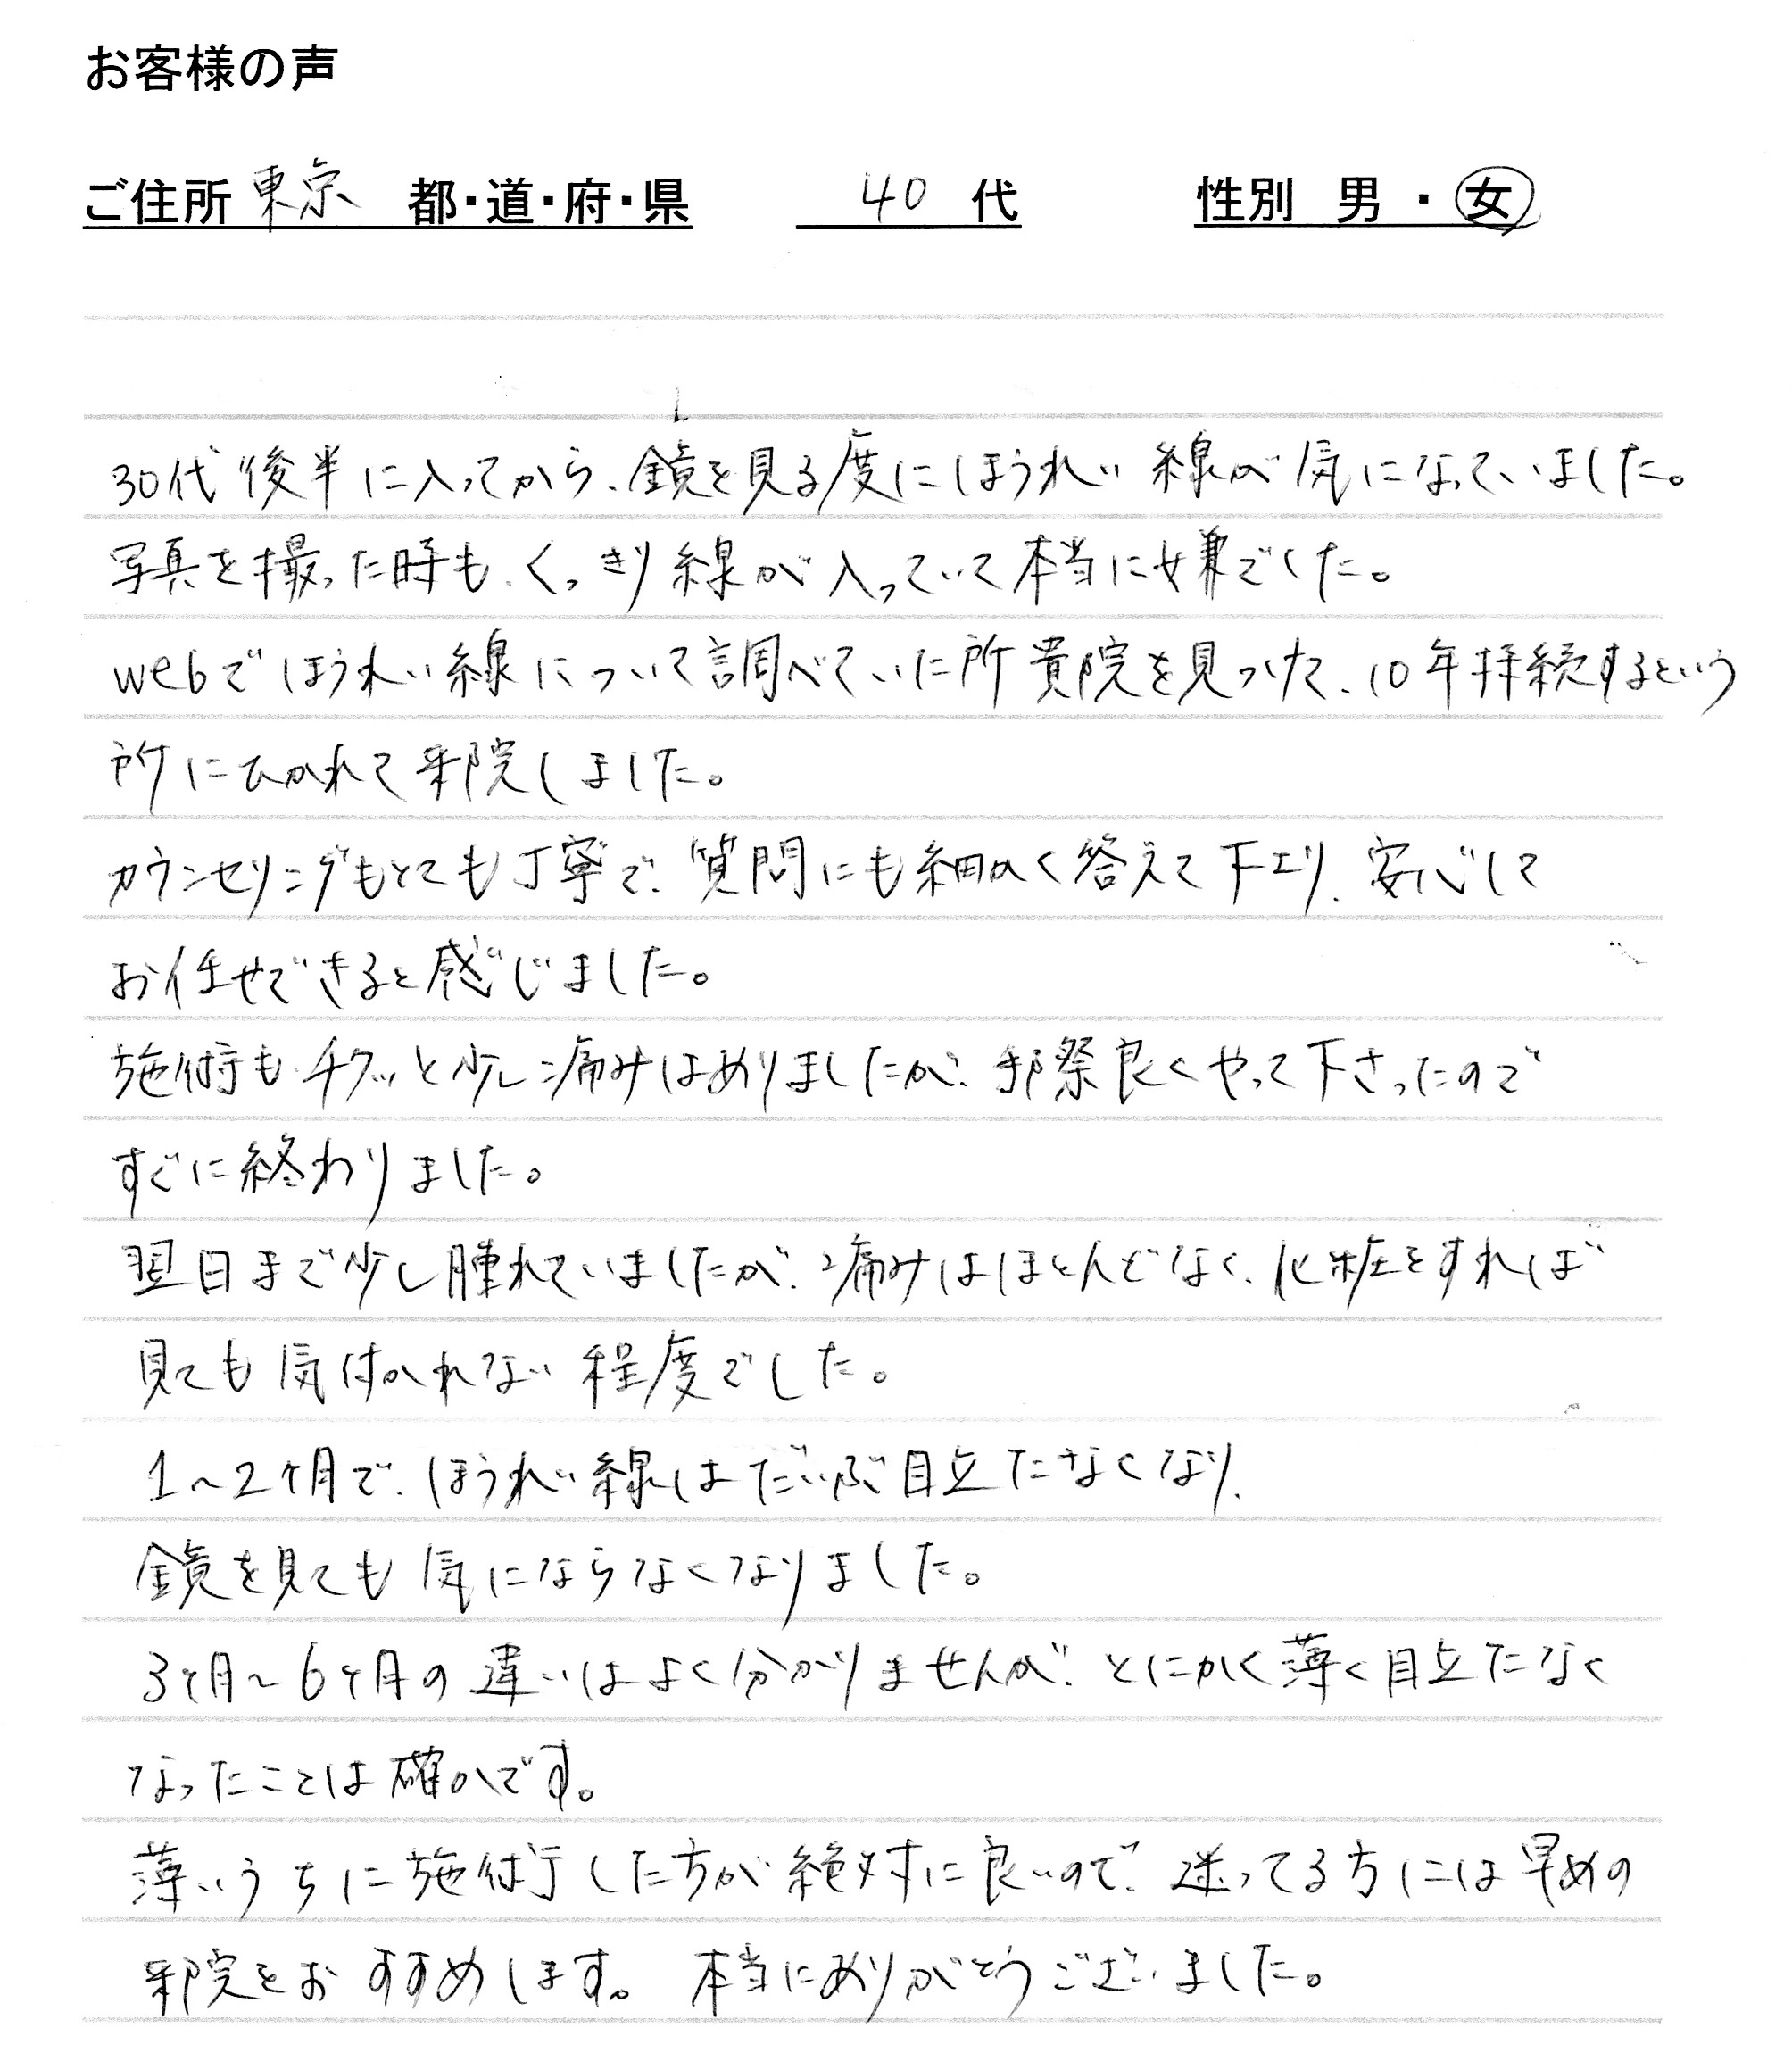 お客様の声
ご住所 東京 都・道・府・県 40 代 性別 男 ・ 女
30代後半に入ってから、鏡を見る度にほうれい線が気になっていました。
写真を撮った時も、くっきり線が入っていて本当に嫌でした。
webでほうれい線について調べていた所貴院を見つけて、10年持続するという
所にひかれて来院しました。
カウンセリングもとても丁寧で、質問にも細かく答えて下さり、安心して
お任せできると感じました。
施術も、チクッと少し痛みはありましたが、手際良くやって下さったので
すぐに終わりました。
翌日まで少し腫れていましたが、痛みはほとんどなく、化粧をすれば
見ても気付かれない程度でした。
1〜2ヶ月で、ほうれい線はだいぶ目立たなくなり、
鏡を見ても気にならなくなりました。
3ヶ月〜6ヶ月の違いはよく分かりませんが、とにかく薄く目立たなく
なったことは確かです。
薄いうちに施術した方が絶対に良いので、迷ってる方には早めの
来院をおすすめします。本当にありがとうございました。